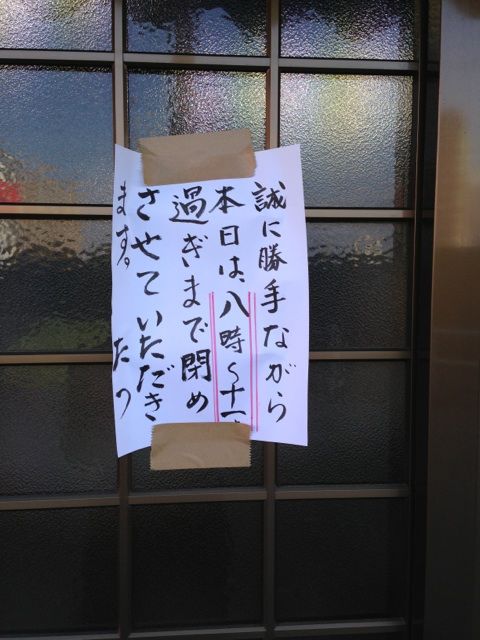 誠に勝手ながら
本日は、八時〜十一
過ぎまで閉め
させていただき
ます。 たつ